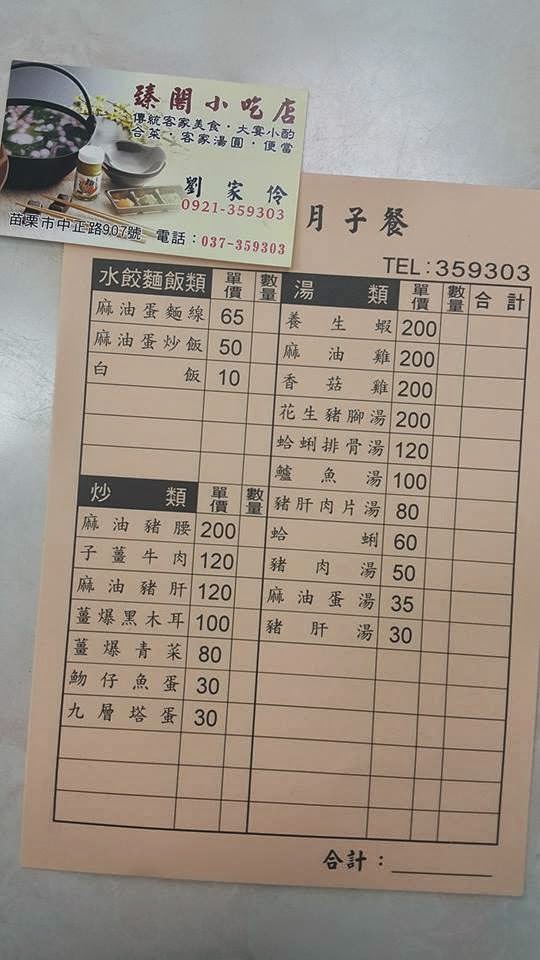 臻閣小吃店
傳統客家美食・大宴小酌
合菜・客家湯圓・便當
劉家伶
0921-359303
苗栗市中正路907號 電話：037-359303
月子餐
TEL：359303
水餃麵飯類 單價 數量
麻油蛋麵線 65
麻油蛋炒飯 50
白飯 10
炒類 單價 數量
麻油豬腰 200
子薑牛肉 120
麻油豬肝 120
薑爆黑木耳 100
薑爆青菜 80
魩仔魚蛋 30
九層塔蛋 30
湯類 單價 數量 合計
養生蝦 200
麻油雞 200
香菇雞 200
花生豬腳湯 200
蛤蜊排骨湯 120
鱸魚湯 100
豬肝肉片湯 80
蛤蜊 60
豬肉湯 50
麻油蛋湯 35
豬肝湯 30
合計：